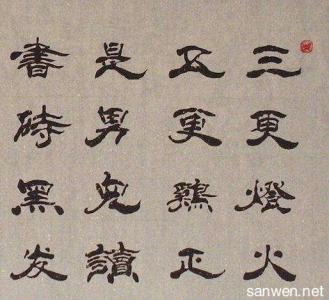 三更燈火
五更鷄正
是男兒讀
書時黑发
sanwen.net